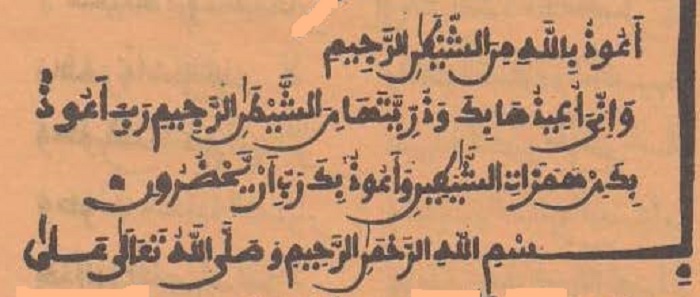 أَعُوذُ بِاللَّهِ مِنَ الشَّيْطَنِ الرَّجِيمِ
وَإِنِّي أُعِيذُهَا بِكَ وَذُرِّيَّتَهَا مِنَ الشَّيْطَنِ الرَّجِيمِ رَبِّ أَعُوذُ
بِكَ مِنْ هَمَزَاتِ الشَّيَاطِينِ وَأَعُوذُ بِكَ رَبِّ أَنْ يَّحْضُرُونِ
بِسْمِ اللهِ الرَّحْمَنِ الرَّحِيمِ وَصَلَّى اللَّهُ تَعَالَى عَلَى